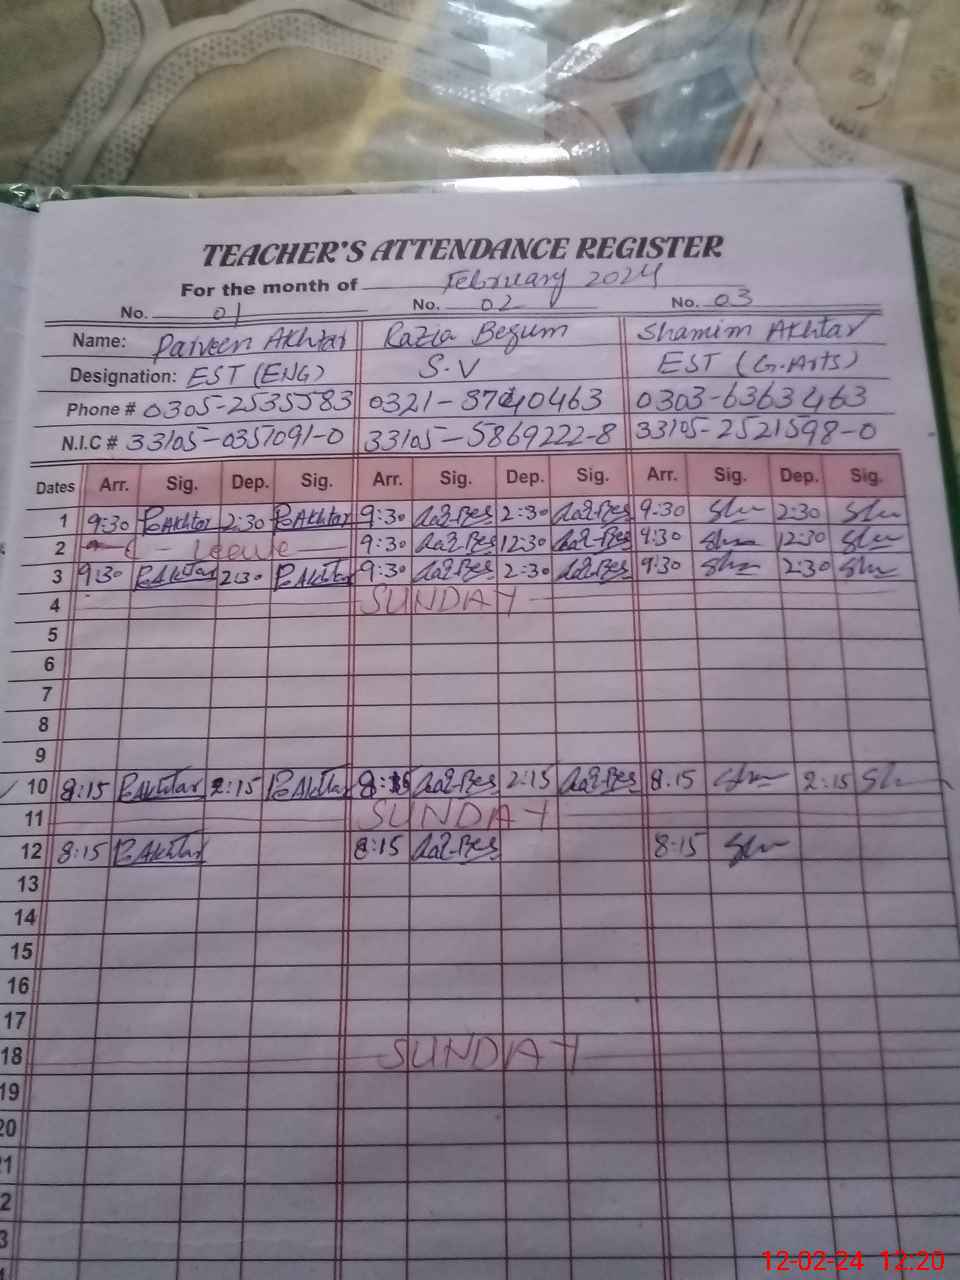 TEACHER'S ATTENDANCE REGISTER
For the month of February 2024
No. 01 No. 02 No. 03
Name: Parveen Akhtar Razia Begum Shamim Akhtar
Designation: EST (ENG) S.V EST (G.Arts)
Phone # 0305-2535583 0321-8740463 0303-6363463
N.I.C # 33105-0357091-0 33105-5869222-8 33105-2521598-0
Dates Arr. Sig. Dep. Sig. Arr. Sig. Dep. Sig. Arr. Sig. Dep. Sig.
1 9:30 P.Akhtar 2:30 P.Akhtar 9:30 2:30 9:30 2:30
2 Leave 9:30 12:30 9:30 12:30
3 9:30 P.Akhtar 2:30 P.Akhtar 9:30 2:30 9:30 2:30
4 SUNDAY
5
6
7
8
9
10 8:15 P.Akhtar 2:15 P.Akhtar 8:15 2:15 8.15 2:15
11 SUNDAY
12 8:15 P.Akhtar 8:15 8:15
13
14
15
16
17
18 SUNDAY
19
20
21
2
3
12-02-24 12:20